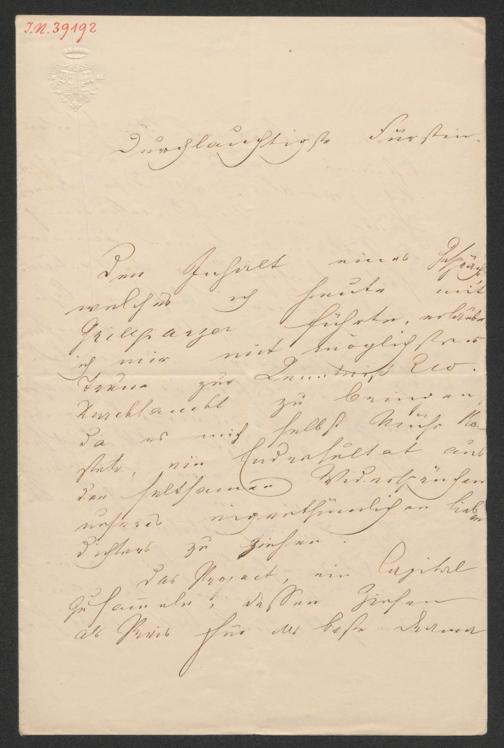 I.N. 39192
Durchlauchtigste Fürstin.
Den Inhalt eines Gespräch
welches ich heute mit
Grillparzer führte, erlaube
ich mir mit möglichster
Treue zur Kenntniß Euer
Durchlaucht zu bringen,
da es mich selbst Mühe ko-
stete, ein Endresultat aus
den seltsamen Widersprüchen
unseres eigenthümlichen
dichters zu ziehen.
Das Project, ein Capital
zu sammeln, dessen Zinsen
als Preis für das beste Drama